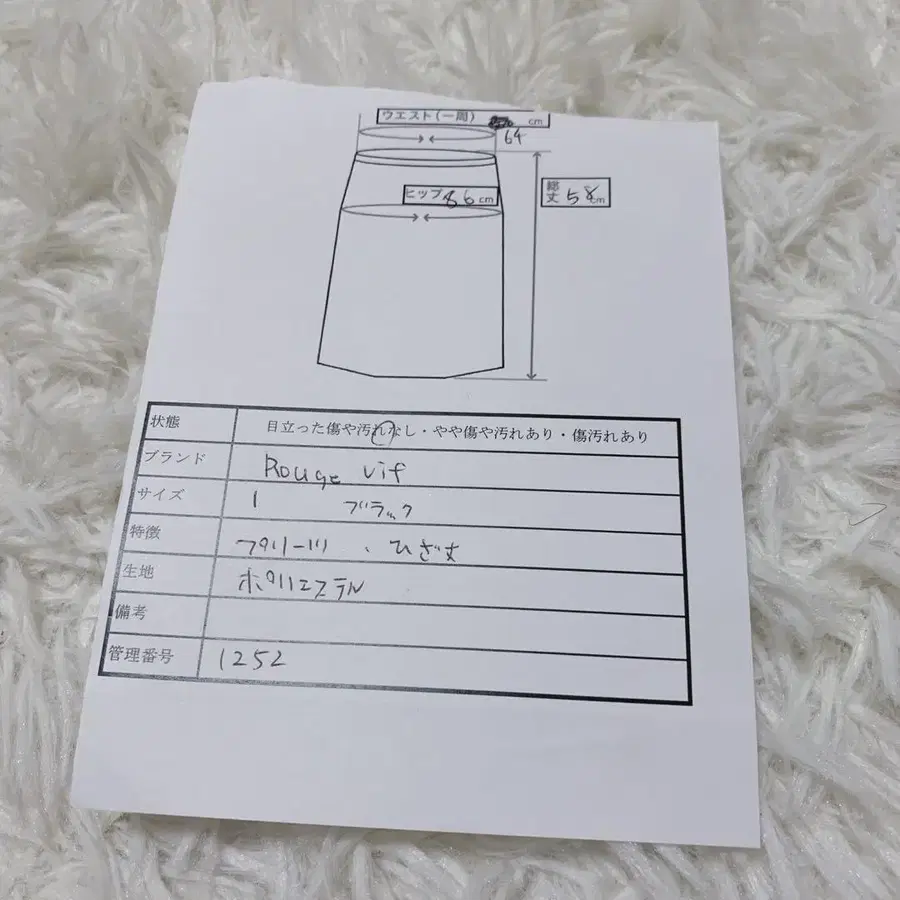 ウエスト(一周) cm
64
ヒップ 86 cm
総丈 58 cm
状態 目立った傷や汚れなし・やや傷や汚れあり・傷汚れあり
ブランド Rouge vif
サイズ 1 ブラック
特徴 プリーツ、ひざ丈
生地 ポリエステル
備考
管理番号 1252